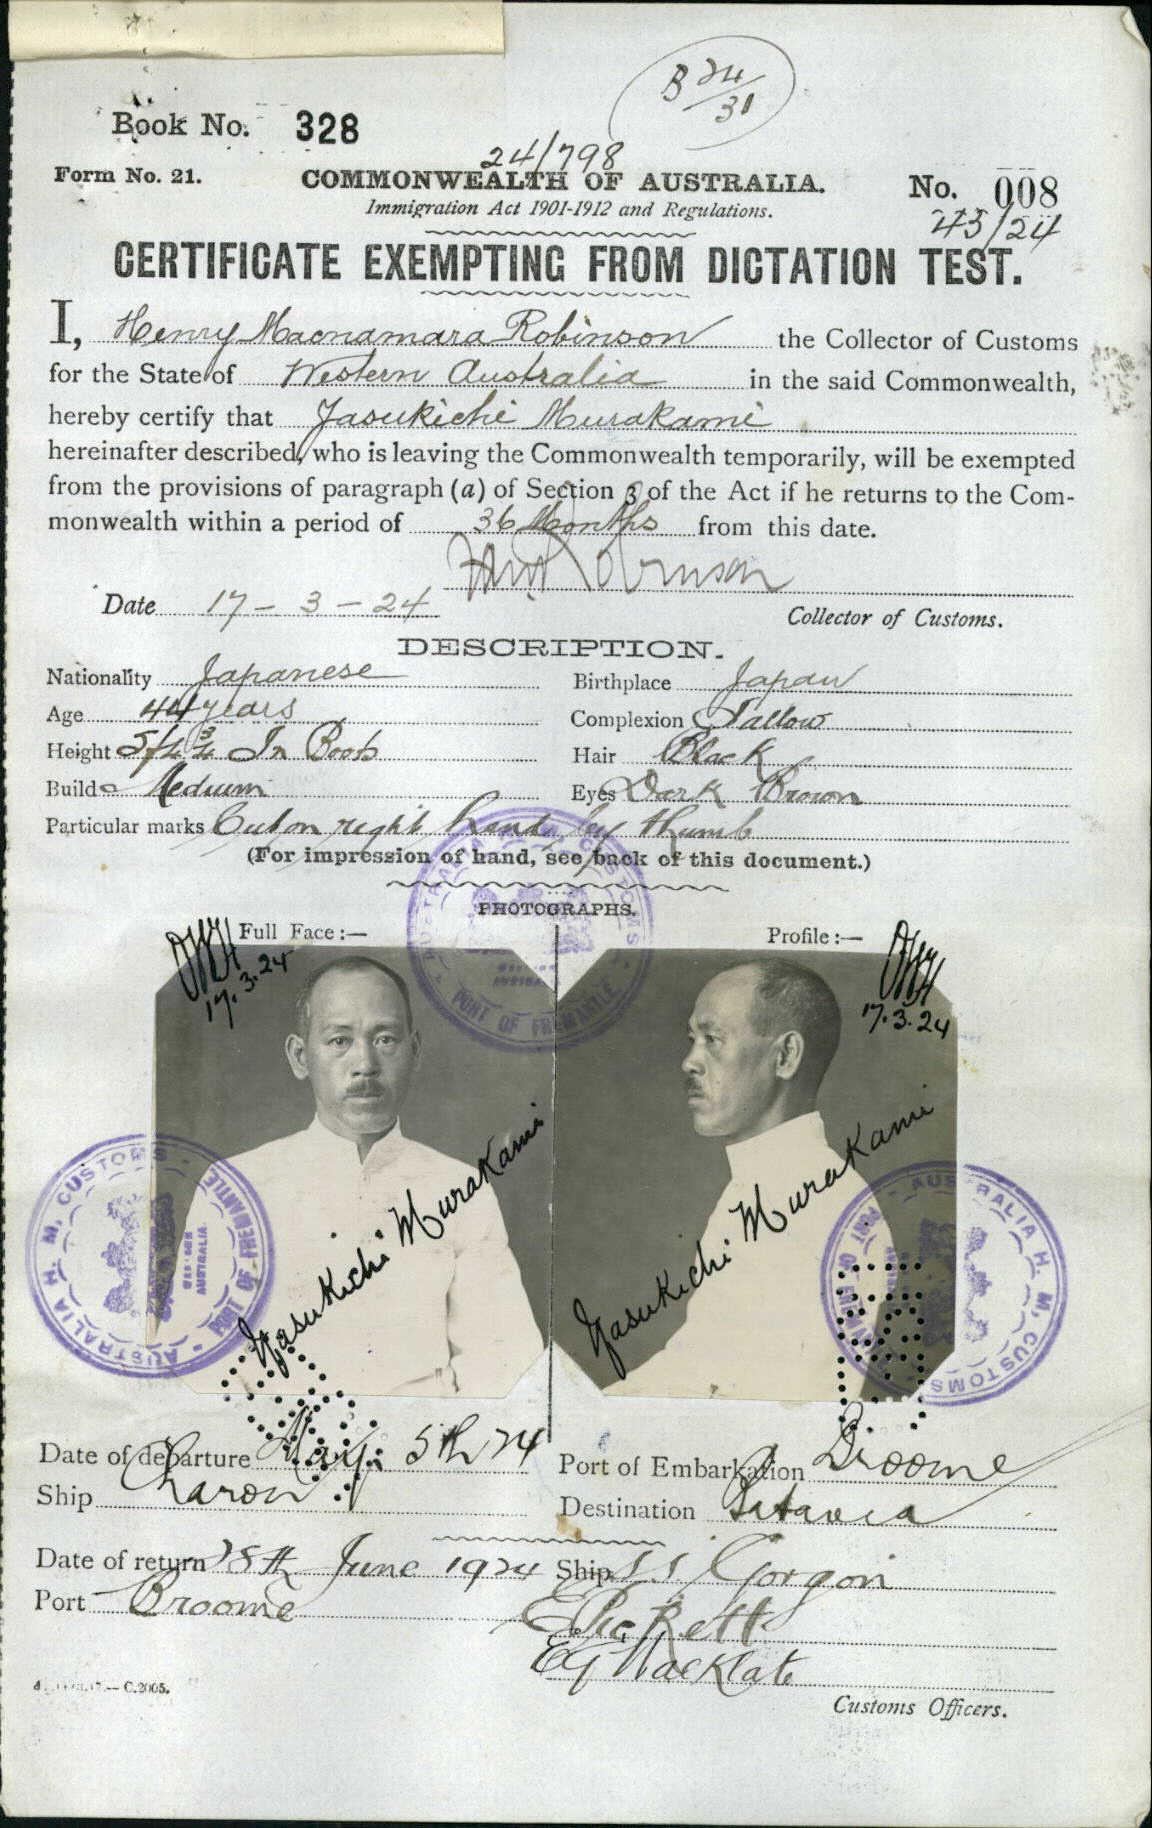 B 24/31
Book No. 328
24/798
Form No. 21.
COMMONWEALTH OF AUSTRALIA.
No. 008
Immigration Act 1901-1912 and Regulations.
43/24
CERTIFICATE EXEMPTING FROM DICTATION TEST.
I, Henry Macnamara Robinson the Collector of Customs
for the State of Western Australia in the said Commonwealth,
hereby certify that Yasukichi Murakami
hereinafter described, who is leaving the Commonwealth temporarily, will be exempted
from the provisions of paragraph (a) of Section 3 of the Act if he returns to the Com-
monwealth within a period of 36 Months from this date.
Robinson
Date 17-3-24
Collector of Customs.
DESCRIPTION.
Nationality Japanese Birthplace Japan
Age 44 years Complexion Sallow
Height 5/4 3/4 In Boots Hair Black
Build Medium Eyes Dark Brown
Particular marks Cut on right hand by thumb
(For impression of hand, see back of this document.)
PHOTOGRAPHS.
Full Face:— Profile:—
17.3.24
17.3.24
AUSTRALIA H. M. CUSTOMS
PORT OF FREMANTLE
Yasukichi Murakami
Yasukichi Murakami
AUSTRALIA H. M. CUSTOMS
PORT OF FREMANTLE
AUSTRALIA H. M. CUSTOMS
PORT OF FREMANTLE
Date of departure May 5th 24 Port of Embarkation Broome
Ship Charon Destination Batavia
Date of return 28th June 1924 Ship S.S. Gorgon
Port Broome
C.2005.
Customs Officers.